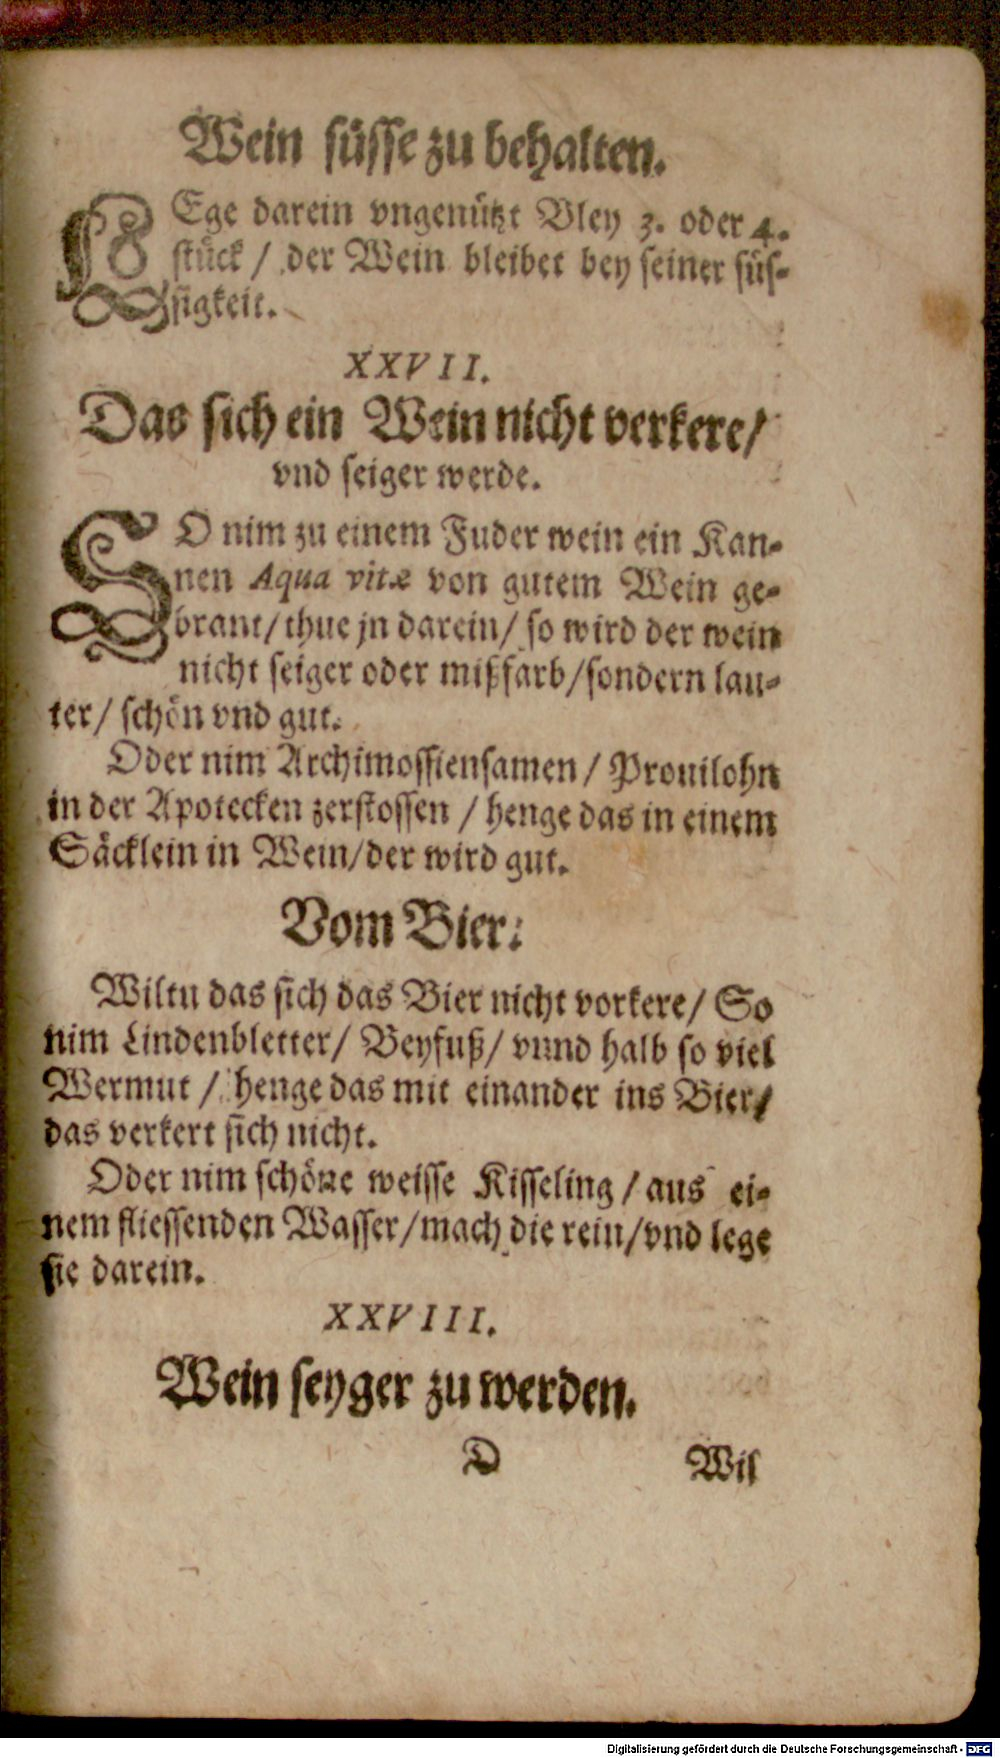 Wein süsse zu behalten.
LEge darein vngenützt Bley 3. oder 4.
stück / der Wein bleibet bey seiner süs-
sigkeit.
XXVII.
Das sich ein Wein nicht verkere/
vnd seiger werde.
SO nim zu einem Fuder wein ein Kan-
nen Aqua vitæ von gutem Wein ge-
brant/ thue jn darein/ so wird der wein
nicht seiger oder mißfarb/sondern lau-
ter/ schön vnd gut.
Oder nim Archimossiensamen / Prouilohn
in der Apotecken zerstossen / henge das in einem
Säcklein in Wein/der wird gut.
Vom Bier.
Wiltu das sich das Bier nicht vorkere/ So
nim Lindenbletter/ Beyfuß/ vnnd halb so viel
Wermut / henge das mit einander ins Bier/
das verkert sich nicht.
Oder nim schöne weisse Kisseling / aus ei-
nem fliessenden Wasser/mach die rein/vnd lege
sie darein.
XXVIII.
Wein seyger zu werden.
D Wil
Digitalisierung gefördert durch die Deutsche Forschungsgemeinschaft - DFG